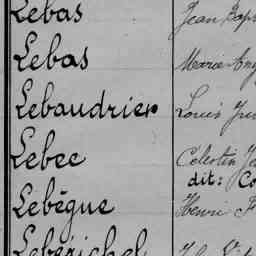 Lebas Jean Bap
Lebas Marie Ang
Lebaudrier Louis
Lebee Celestin
dit: Co
Lebègue Henri F
Leberichel